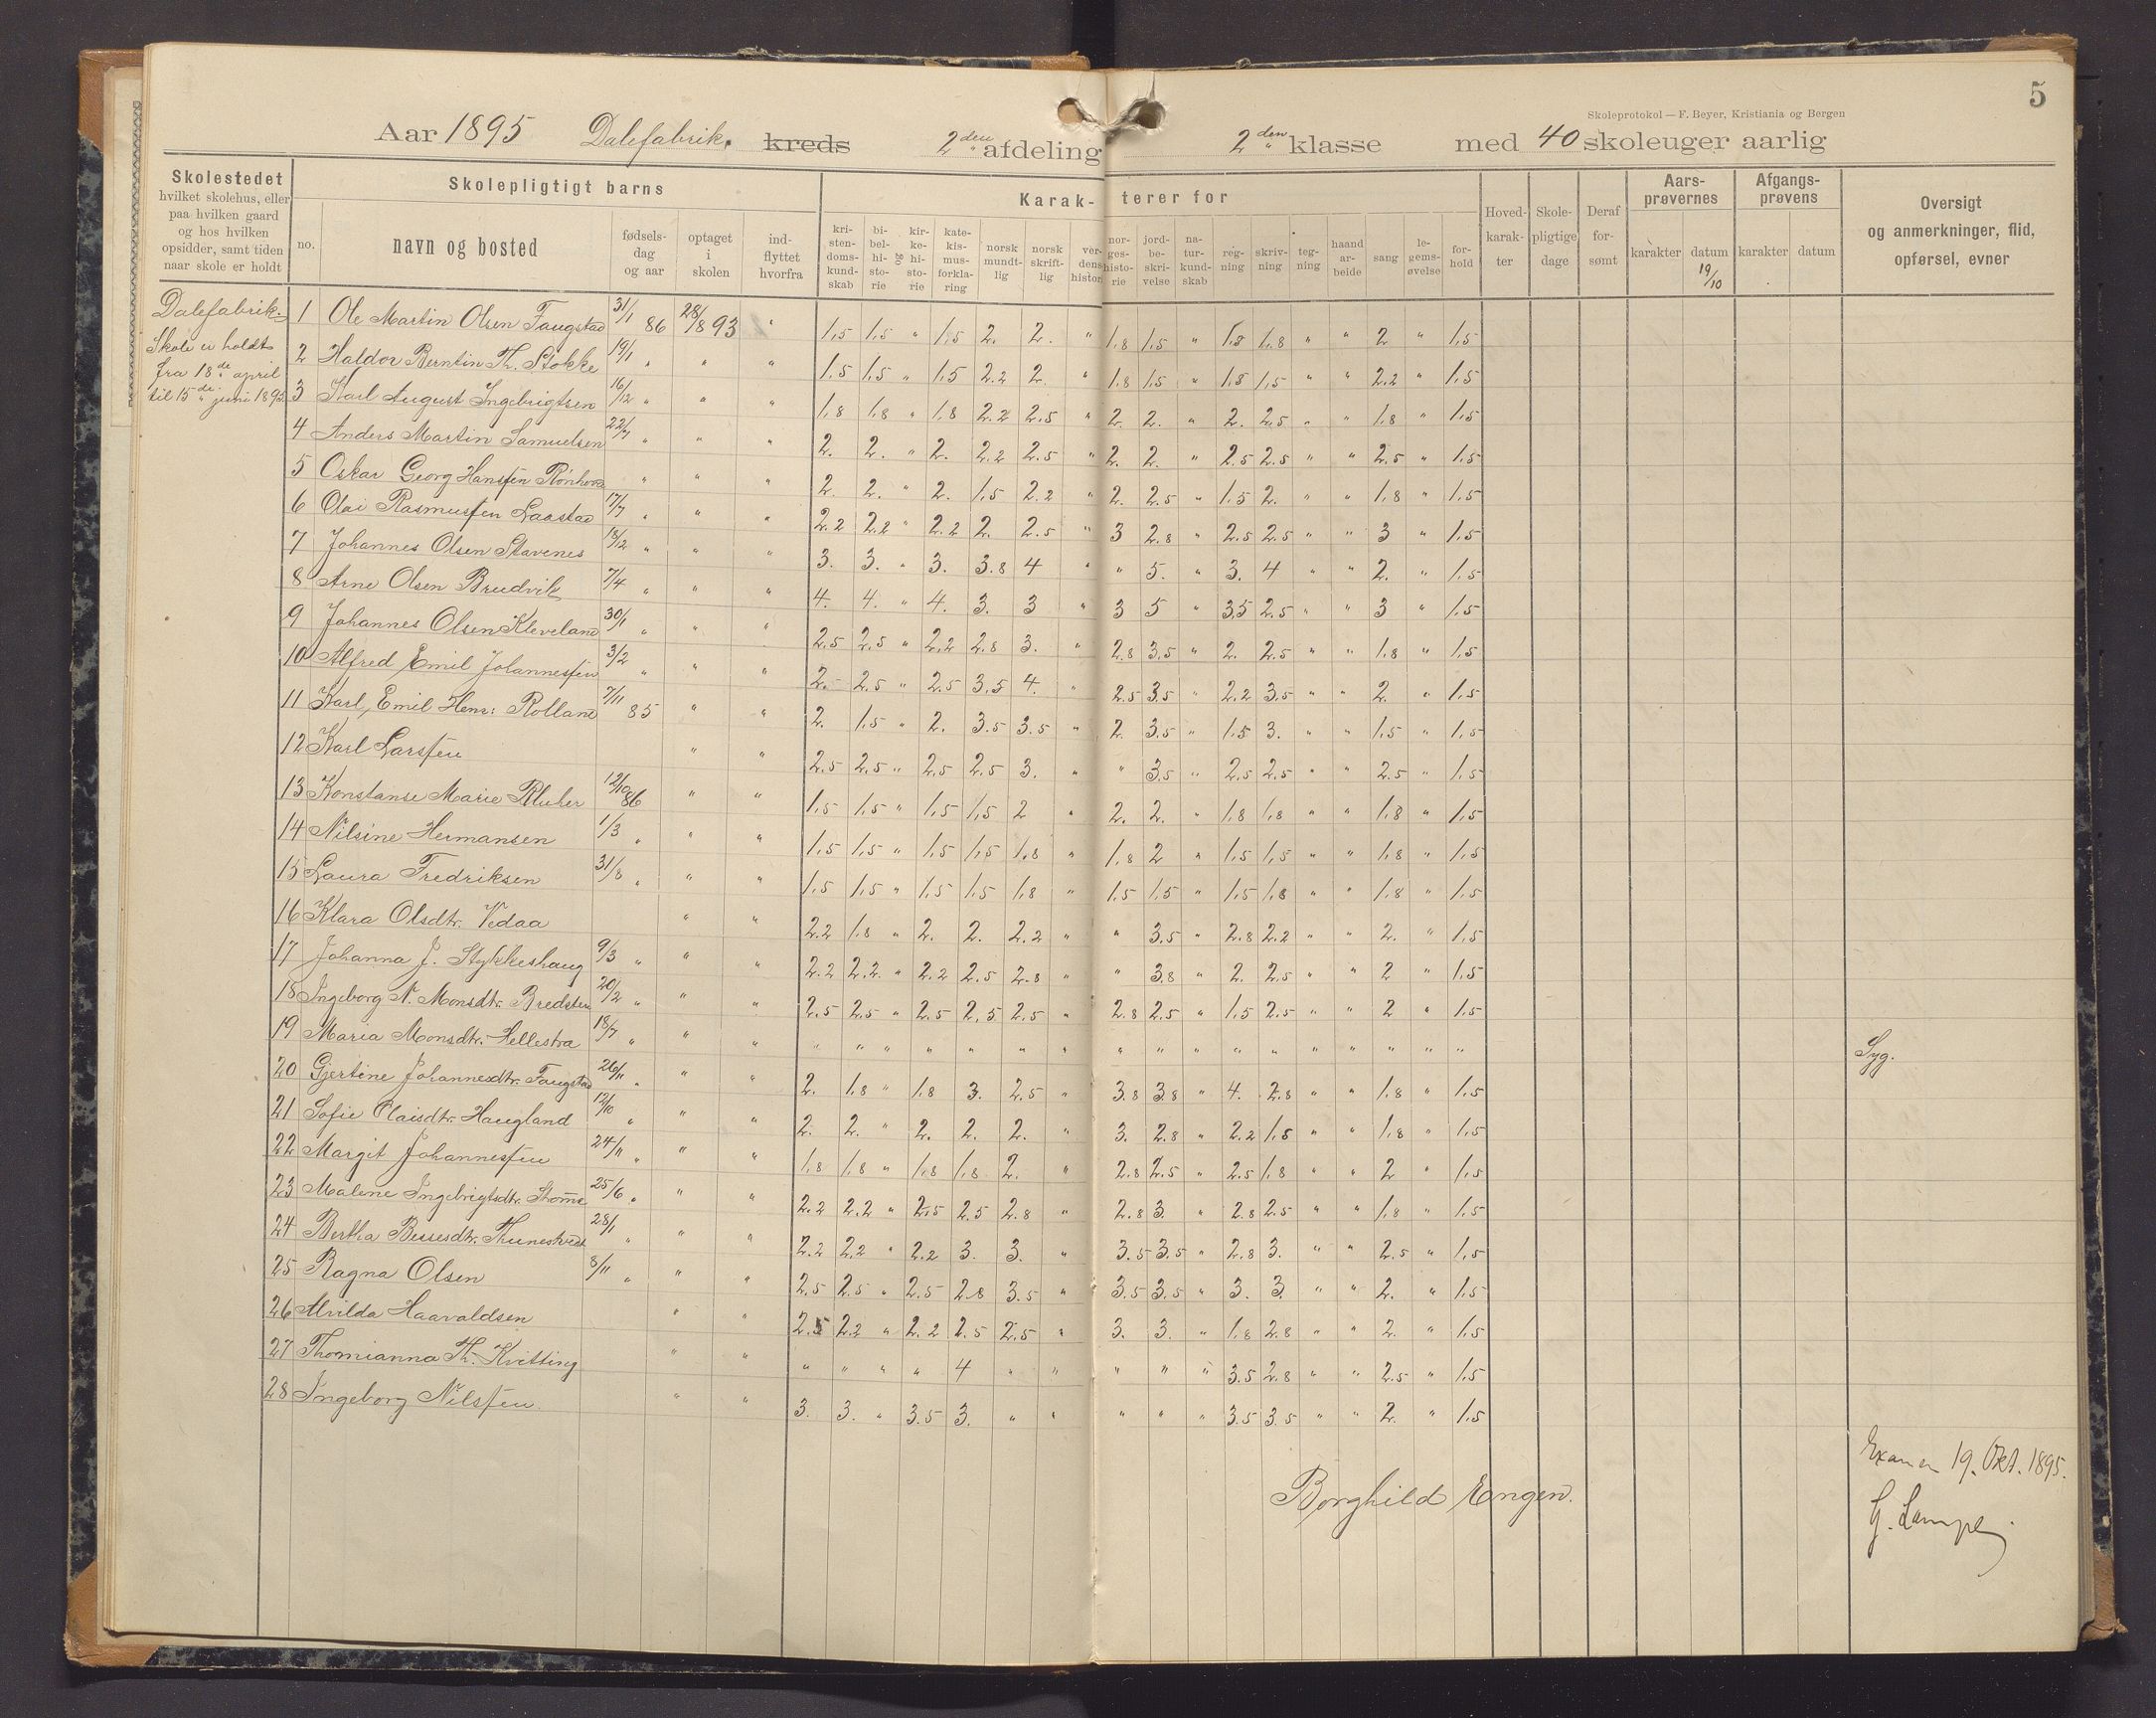 5
Skoleprotokol — F. Beyer, Kristiania og Bergen
Aar 1895 Dalefabrik. kreds 2den afdeling 2den klasse med 40 skoleuger aarlig
Skolestedet
hvilket skolehus, eller
paa hvilken gaard
og hos hvilken
opsidder, samt tiden
naar skole er holdt
Skolepligtigt barns
no. navn og bosted
fødsels-
dag
og aar
optaget
i
skolen
ind-
flyttet
hvorfra
Karak- terer for
kri-
sten-
doms-
kund-
skab
bi-
bel-
hi-
sto-
rie
og
kir-
ke-
hi-
sto-
rie
kate-
kis-
mus-
forkla-
ring
norsk
mundt-
lig
norsk
skrift-
lig
ver-
dens
histori
nor-
ges-
histo-
rie
jord-
be-
skri-
velse
na-
tur-
kund-
skab
reg-
ning
skriv-
ning
teg-
ning
haand
ar-
beide
sang
le-
gems-
øvelse
for-
hold
Hoved-
karak-
ter
Skole-
pligtige
dage
Deraf
for-
sømt
Aars-
prøvernes
karakter datum
19/10
Afgangs-
prøvens
karakter datum
Oversigt
og anmerkninger, flid,
opførsel, evner
Dalefabrik.
Skole er holdt
fra 18de april
til 15de juni 1895.
1 Ole Martin Olsen Faugstad 31/1 86 28/8 93 " 1.5 1.5 " 1.5 2. 2. " 1.8 1.5 " 1.8 1.8 " " 2 " 1.5
2 Haldor Berntin Th. Stokke 19/1 " " " 1.5 1.5 " 1.5 2.2 2. " 1.8 1.5 " 1.8 1.5 " " 2.2 " 1.5
3 Karl August Ingebrigtsen 16/12 " " " 1.8 1.8 " 1.8 2.2 2.5 " 2. 2. " 2. 2.5 " " 1.8 " 1.5
4 Anders Martin Samuelsen 22/7 " " " 2. 2. " 2. 2.2 2.5 " 2. 2. " 2.5 2.5 " " 2.5 " 1.5
5 Oskar Georg Hanssen " " " 2. 2. " 2. 1.5 2.2 " 2. 2.5 " 1.5 2. " " 1.8 " 1.5
6 Olai Rasmussen Laastad 17/7 " " " 2.2 2.2 " 2.2 2. 2.5 " 3 2.8 " 2.5 2.5 " " 3 " 1.5
7 Johannes Olsen Stavenes 18/12 " " " 3. 3. " 3. 3.8 4 " " 5. " 3. 4 " " 2. " 1.5
8 Arne Olsen Brudvik 7/4 " " " 4. 4. " 4. 3. 3 " 3 5 " 3.5 2.5 " " 3 " 1.5
9 Johannes Olsen Kleveland 30/1 " " " 2.5 2.5 " 2.2 2.8 3. " 2.8 3.5 " 2. 2.5 " " 1.8 " 1.5
10 Alfred Emil Johannessen 3/2 " " " 2. 2.5 " 2.5 3.5 4. " 2.5 3.5 " 2.2 3.5 " " 2. " 1.5
11 Karl, Emil Henr: Rolland 7/11 85 " " 2. 1.5 " 2. 3.5 3.5 " 2. 3.5 " 1.5 3. " " 1.5 " 1.5
12 Karl Larssen " " 2.5 2.5 " 2.5 2.5 3. " " 3.5 " 2.5 2.5 " " 2.5 " 1.5
13 Konstanse Marie 12/10 86 " " 1.5 1.5 " 1.5 1.5 2 " 2. 2. " 1.8 1.8 " " 1.8 " 1.5
14 Nilsine Hermansen 1/3 " " " 1.5 1.5 " 1.5 1.5 1.8 " 1.8 2 " 1.5 1.5 " " 1.8 " 1.5
15 Laura Fredriksen 31/8 " " " 1.5 1.5 " 1.5 1.5 1.8 " 1.5 1.5 " 1.5 1.8 " " 1.8 " 1.5
16 Klara Olsdtr. Vedaa " " 2.2 1.8 " 2. 2. 2.2 " " 3.5 " 2.8 2.2 " " 2. " 1.5
17 Johanna J. Stykkeshaug 9/3 " " " 2.2 2.2 " 2.2 2.5 2.8 " " 3.8 " 2. 2.5 " " 2 " 1.5
18 Ingeborg N. Monsdtr. Bredsten 20/2 " " " 2.5 2.5 " 2.5 2.5 2.5 " 2.8 2.5 " 1.5 2.5 " " 2 " 1.5
19 Maria Monsdtr. Hellestra 18/7 " " " " " " " " " " " " " " " " " " " " Syg.
20 Gjertine Johannesdtr. Faugstad 26/11 " " " 2. 1.8 " 1.8 3. 2.5 " 3.8 3.8 " 4. 2.8 " " 1.8 " 1.5
21 Sofie Olaisdtr. Haugland 12/10 " " " 2. 2. " 2. 2. 2. " 3. 2.8 " 2.2 1.5 " " 1.8 " 1.5
22 Margit Johannessen 24/11 " " " 1.8 1.8 " 1.8 1.8 2. " 2.8 2.5 " 2.5 1.8 " " 2 " 1.5
23 Malene Ingebrigtsdtr. 25/6 " " " 2.2 2.2 " 2.5 2.5 2.8 " 2.8 3. " 2.8 2.5 " " 1.8 " 1.5
24 Bertha 28/1 " " " 2.2 2.2 " 2.2 3. 3. " 3.5 3.5 " 2.8 3. " " 2.5 " 1.5
25 Ragna Olsen 8/11 " " " 2.5 2.5 " 2.5 2.8 3.5 " 3.5 3.5 " 3. 3. " " 2. " 1.5
26 Alvilda Haavaldsen " " 2.5 2.2 " 2.2 2.5 2.5 " 3. 3. " 1.8 2.8 " " 2. " 1.5
27 Thomianna Th. Kvitting " " " " " " 4 " " " " " 3.5 2.8 " " 2.5 " 1.5
28 Ingeborg Nilssen. " " 3. 3. " 3.5 3. " " " " " 3.5 3.5 " " 2. " 1.5
Examen 19. Okt. 1895.
Borghild Engen.
G. Lampe